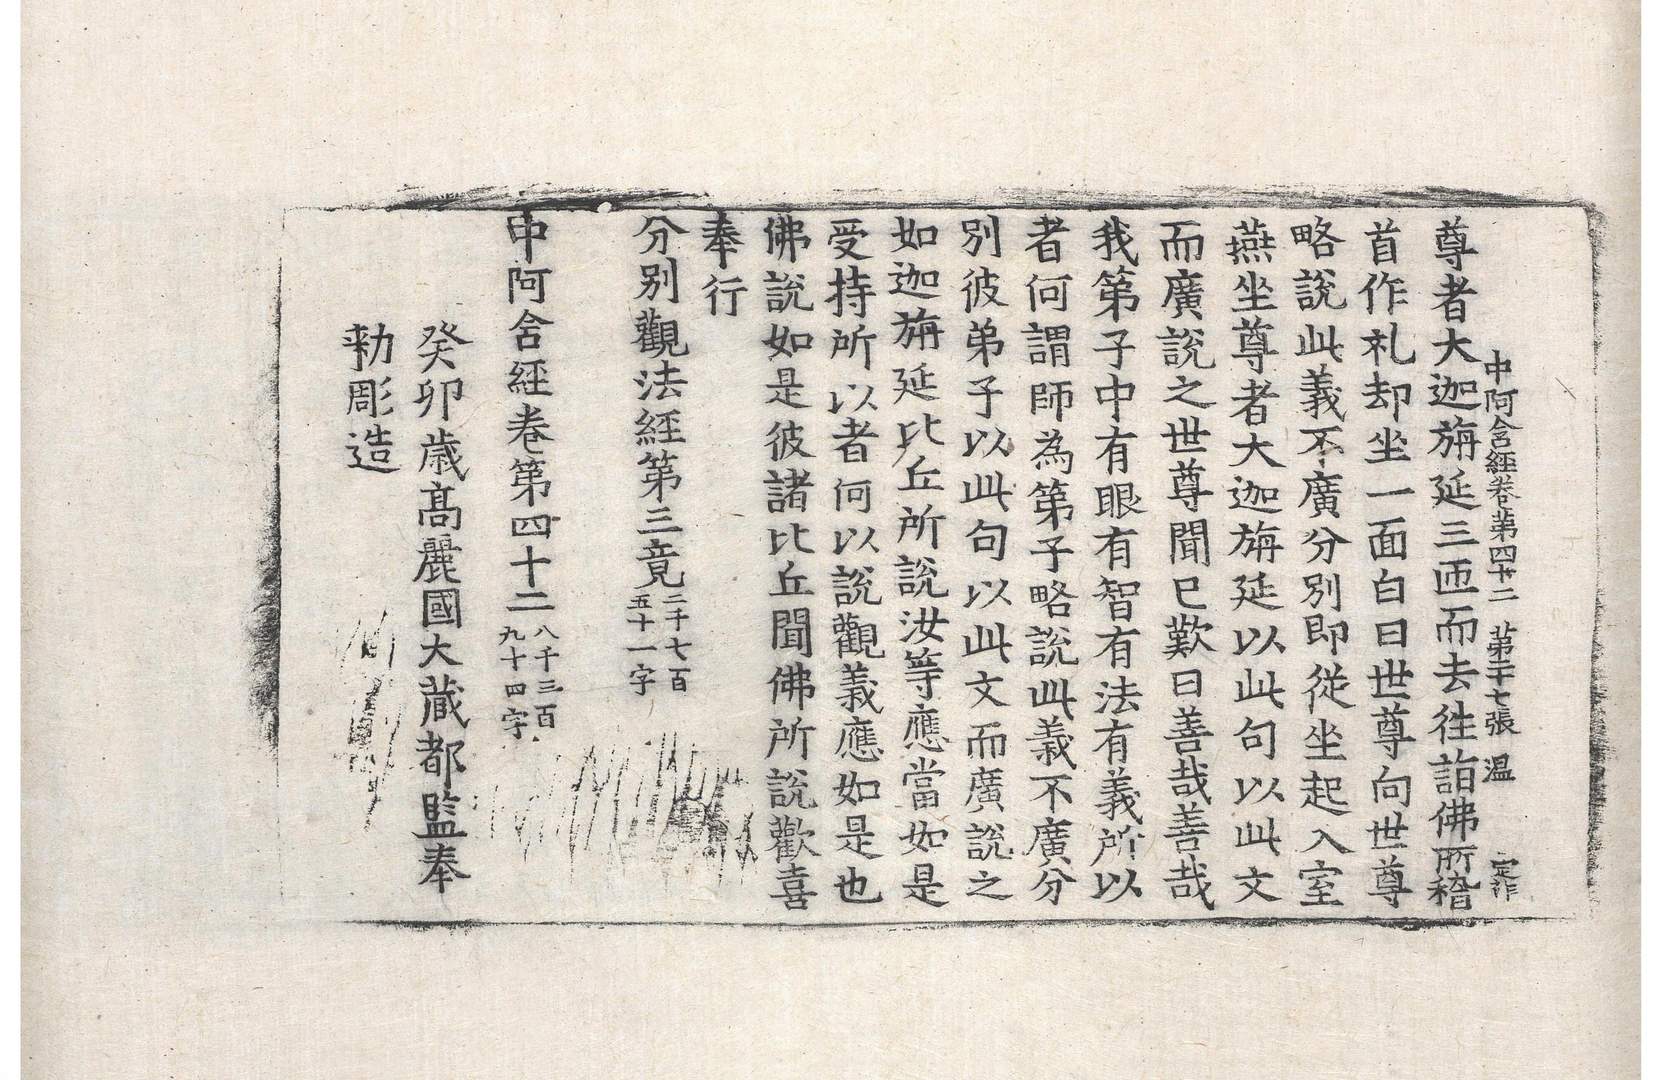 中阿含經卷第四十二 第二十七張 溫 定作
尊者大迦旃延三匝而去往詣佛所稽
首作礼却坐一面白曰世尊向世尊
略說此義不廣分別即從坐起入室
燕坐尊者大迦旃延以此句以此文
而廣說之世尊聞已歎曰善哉善哉
我第子中有眼有智有法有義所以
者何謂師為第子略說此義不廣分
別彼弟子以此句以此文而廣說之
如迦旃延比丘所說汝等應當如是
受持所以者何以說觀義應如是也
佛說如是彼諸比丘聞佛所說歡喜
奉行
分別觀法經第三竟二千七百五十一字
中阿含經卷第四十二八千三百九十四字
癸卯歲高麗國大藏都監奉
勑彫造